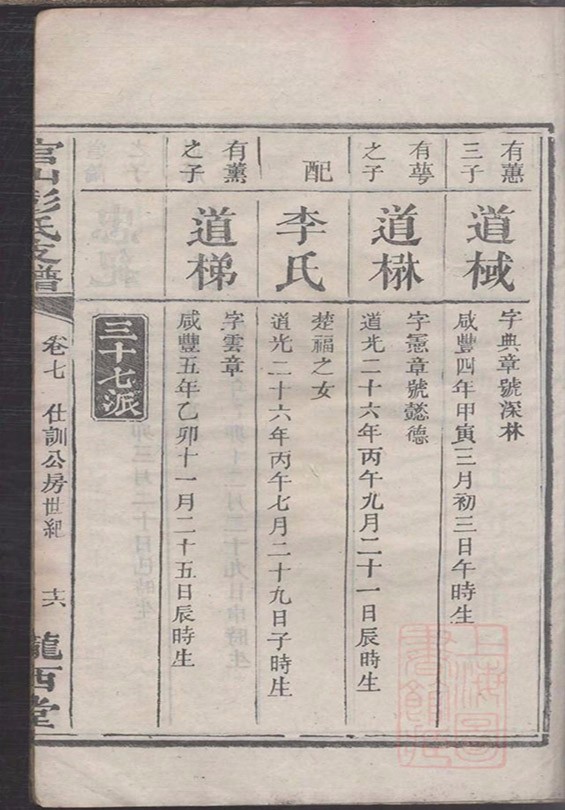 有蕙
三子
道棫
字典章號深林
咸豐四年甲寅三月初三日午時生
有蕚
之子
道楙
字憲章號懿德
道光二十六年丙午九月二十一日辰時生
配
李氏
楚福之女
道光二十六年丙午七月二十九日子時生
有薰
之子
道梯
字雲章
咸豐五年乙卯十一月二十五日辰時生
三十七派
官山彭氏支譜
卷七
仕訓公房世紀
十六
隴西堂
上海圖書館藏